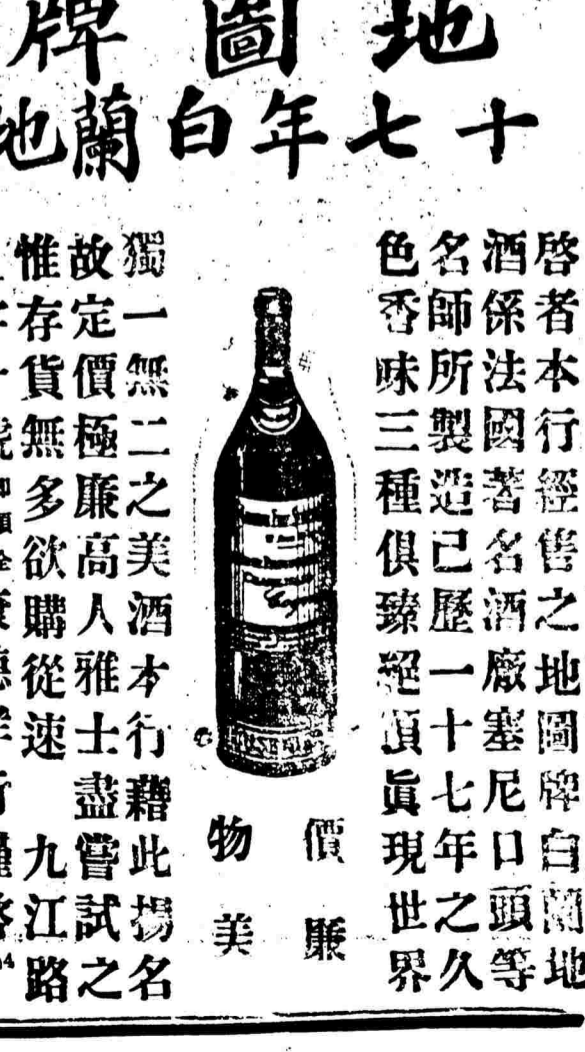 地圖牌
十七年白蘭地
啓者本行經售之地圖牌白蘭地
酒係法國著名酒廠塞尼口頭等
名師所製造已歷一十七年之久
色香味三種俱臻絕頂眞現世界
價廉
物美
獨一無二之美酒本行藉此揚名
故定價極廉高人雅士盡嘗試之
惟存貨無多欲購從速 九江路